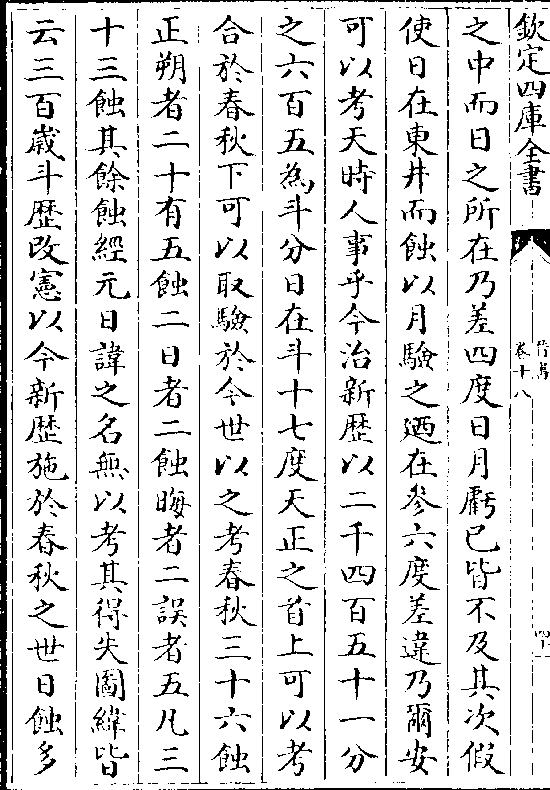 欽定四庫全書
卷十八
之中而日之所在乃差四度日月虧已皆不及其次假
使日在東井而蝕以月驗之廼在參六度差違乃爾安
可以考天時人事乎今治新歴以二千四百五十一分
之六百五為斗分日在斗十七度天正之首上可以考
合於春秋下可以取驗於今世以之考春秋三十六蝕
正朔者二十有五蝕二日者二蝕晦者二誤者五凡三
十三蝕其餘蝕經元日諱之名無以考其得失圖緯皆
云三百歳斗歴改憲以今新歴施於春秋之世日蝕多